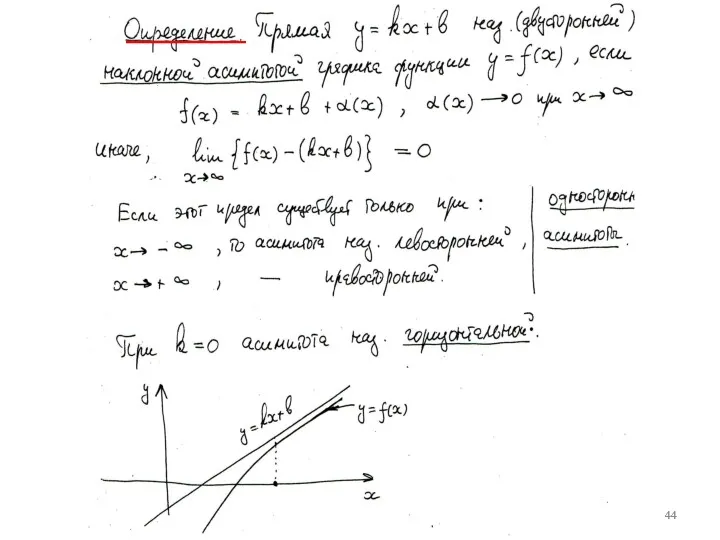 Определение. Прямая y = kx + b наз. (двусторонней)
наклонной асимптотой графика функции y = f(x), если
f(x) = kx + b + α(x), α(x) → 0 при x → ∞
иначе, lim {f(x) − (kx + b)} = 0
x→∞
Если этот предел существует только при:
x → − ∞, то асимптота наз. левосторонней,
x → + ∞, — правосторонней.
односторонн
асимптоты.
При k = 0 асимптота наз. горизонтальной.
y
y = kx + b
y = f(x)
x
44